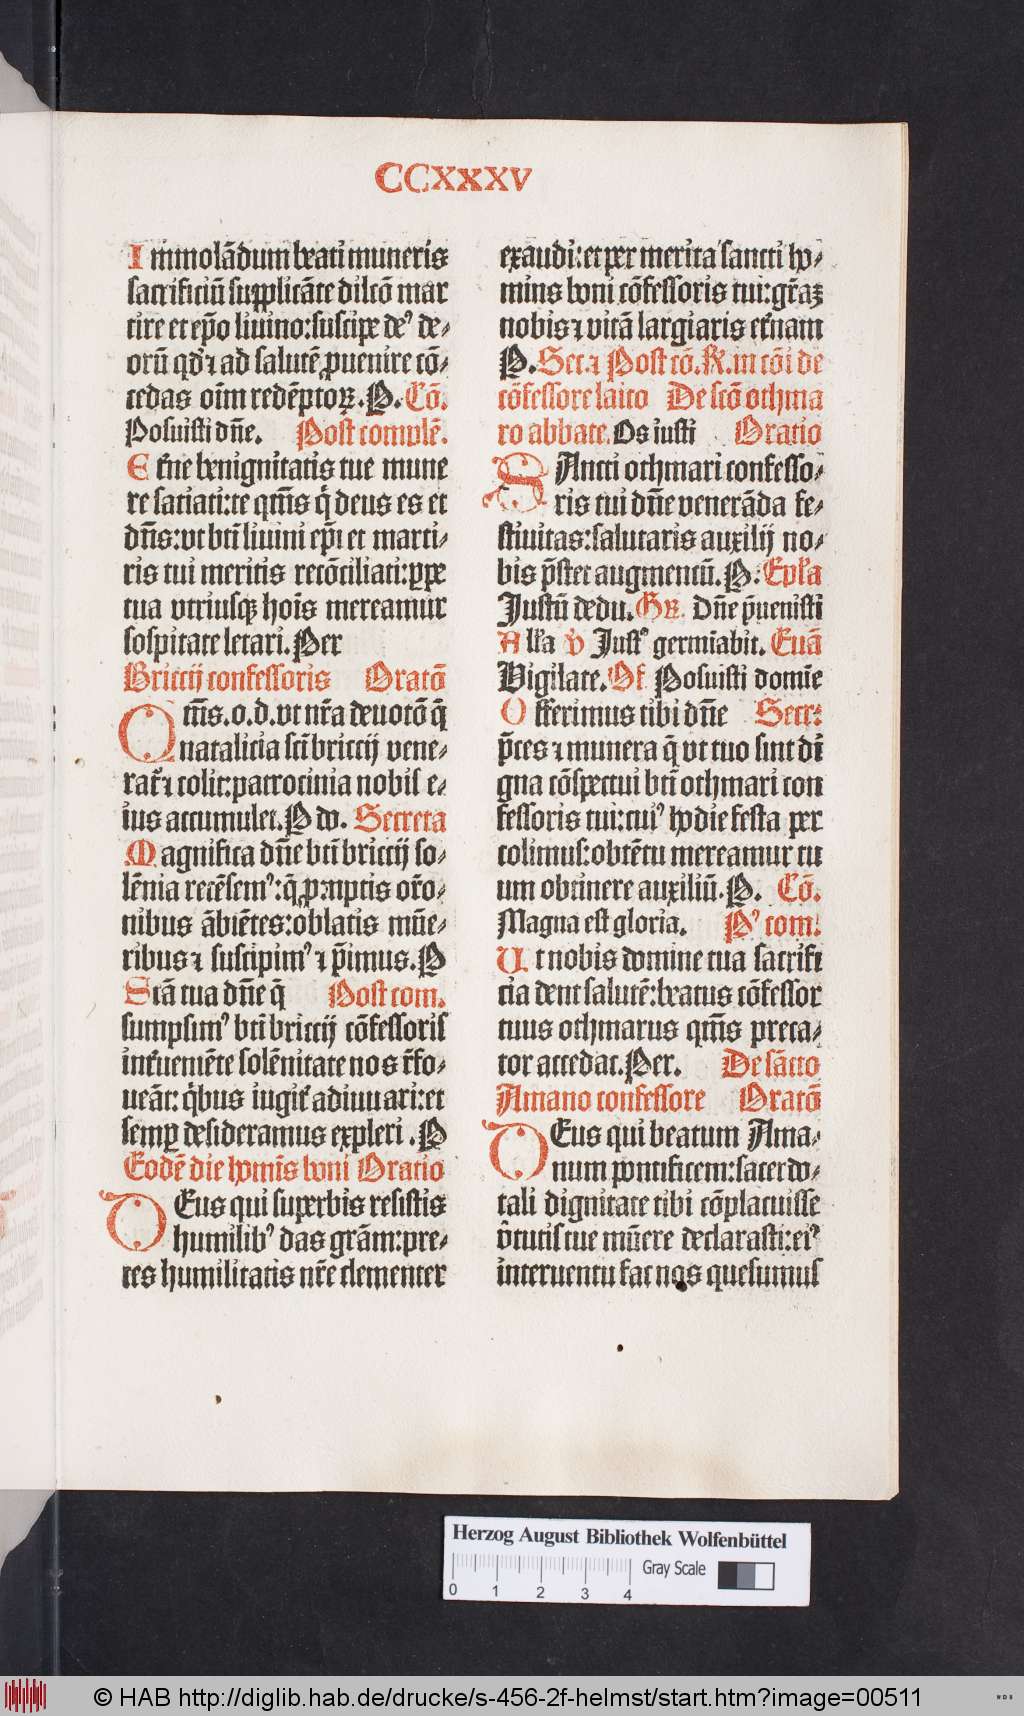 CCXXXV
Immolādum beati muneris
sacrificiū supplicāte dilcō mar
tire et ep̄o liuino: suscipe deꝰ de⸗
orū qd̛ ⁊ ad salutē ꝓuenire cō⸗
cedas oīm redēptoꝝ. P. Cō.
Posuisti dn̄e. Post complē.
Et̛ne benignitatis tue mune
re saciati: te qm̄s q̇ deus es et
dn̄s: vt bt̄i liuini ep̄i et marti⸗
ris tui meritis recōciliati: ꝑpe
tua vtriusqꝫ hoīs mereamur
sospitate letari. Per
Briccij confessoris Oratō
Qm̄s. o. d. vt nr̄a deuotō q̄
natalicia scī briccij vene⸗
rat̛ ⁊ colit: patrocinia nobis e⸗
ius accumulet. P do. Secreta
Magnifica dn̄e bt̄i briccij so⸗
lēnia recēsemꝰ: q̄ ꝓmptis or̄o⸗
nibus ābiētes: oblatis mūe⸗
ribus ⁊ suscipimꝰ ⁊ p̄imus. P
Scā tua dn̄e q̄ Post com.
sumpsimꝰ bt̄i briccij cōfessoris
int̛uemēte solēnitate nos r̄fo⸗
ueāt: q̇bus iugit̛ adiuuari: et
semꝑ desideramus expleri. P
Eodē die homīs boni Oratio
DEus qui superbis resistis
humilibꝰ das grām: pre⸗
ces humilitatis nr̄e clementer
exaudi: et per merita sancti ho⸗
minis boni cōfessoris tui: gr̄aꝫ
nobis ⁊ vitā largiaris et̛nam
P. Sec. ⁊ Post cō. R. in cōi de
cōfessore laico De scō othma
ro abbate. Os iusti Oratio
SAncti othmari confesso⸗
ris tui dn̄e venerāda fe⸗
stiuitas: salutaris auxilij no⸗
bis p̄stet augmentū. P. Epl̛a
Justū dedu. Gr̄. Dn̄e p̄uenisti
All̛a v̛ Justꝰ germīabit. Euā
Vigilate. Of. Posuisti domīe
Offerimus tibi dn̄e Secr:
p̄ces ⁊ munera q̄ vt tuo sint di
gna cōspectui bt̄i othmari con
fessoris tui: cuiꝰ hodie festa per
colimus: obtētu mereamur tu
um obtinere auxiliū. P. Cō.
Magna est gloria. Pꝰ com:
Ut nobis domine tua sacrifi
cia dent salutē: beatus cōfessor
tuus othmarus qm̄s preca⸗
tor accedat. Per. De sācto
Amano confessore Oratō
DEus qui beatum Ama⸗
num pontificem: sacerdo⸗
tali dignitate tibi cōplacuisse
v̛tutis tue mūere declarasti: eiꝰ
interuentu fac nos quesumus
Herzog August Bibliothek Wolfenbüttel
Gray Scale
0 1 2 3 4
© HAB http://diglib.hab.de/drucke/s-456-2f-helmst/start.htm?image=00511